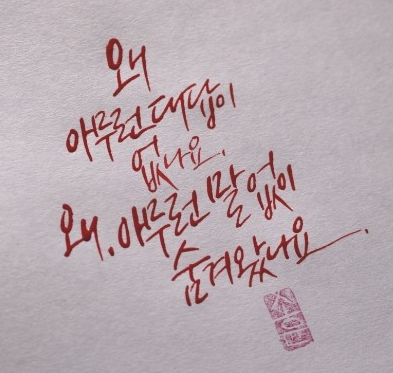 왜
아무런 대답이
없나요.
왜. 아무런 말 없이
숨겨왔나요.